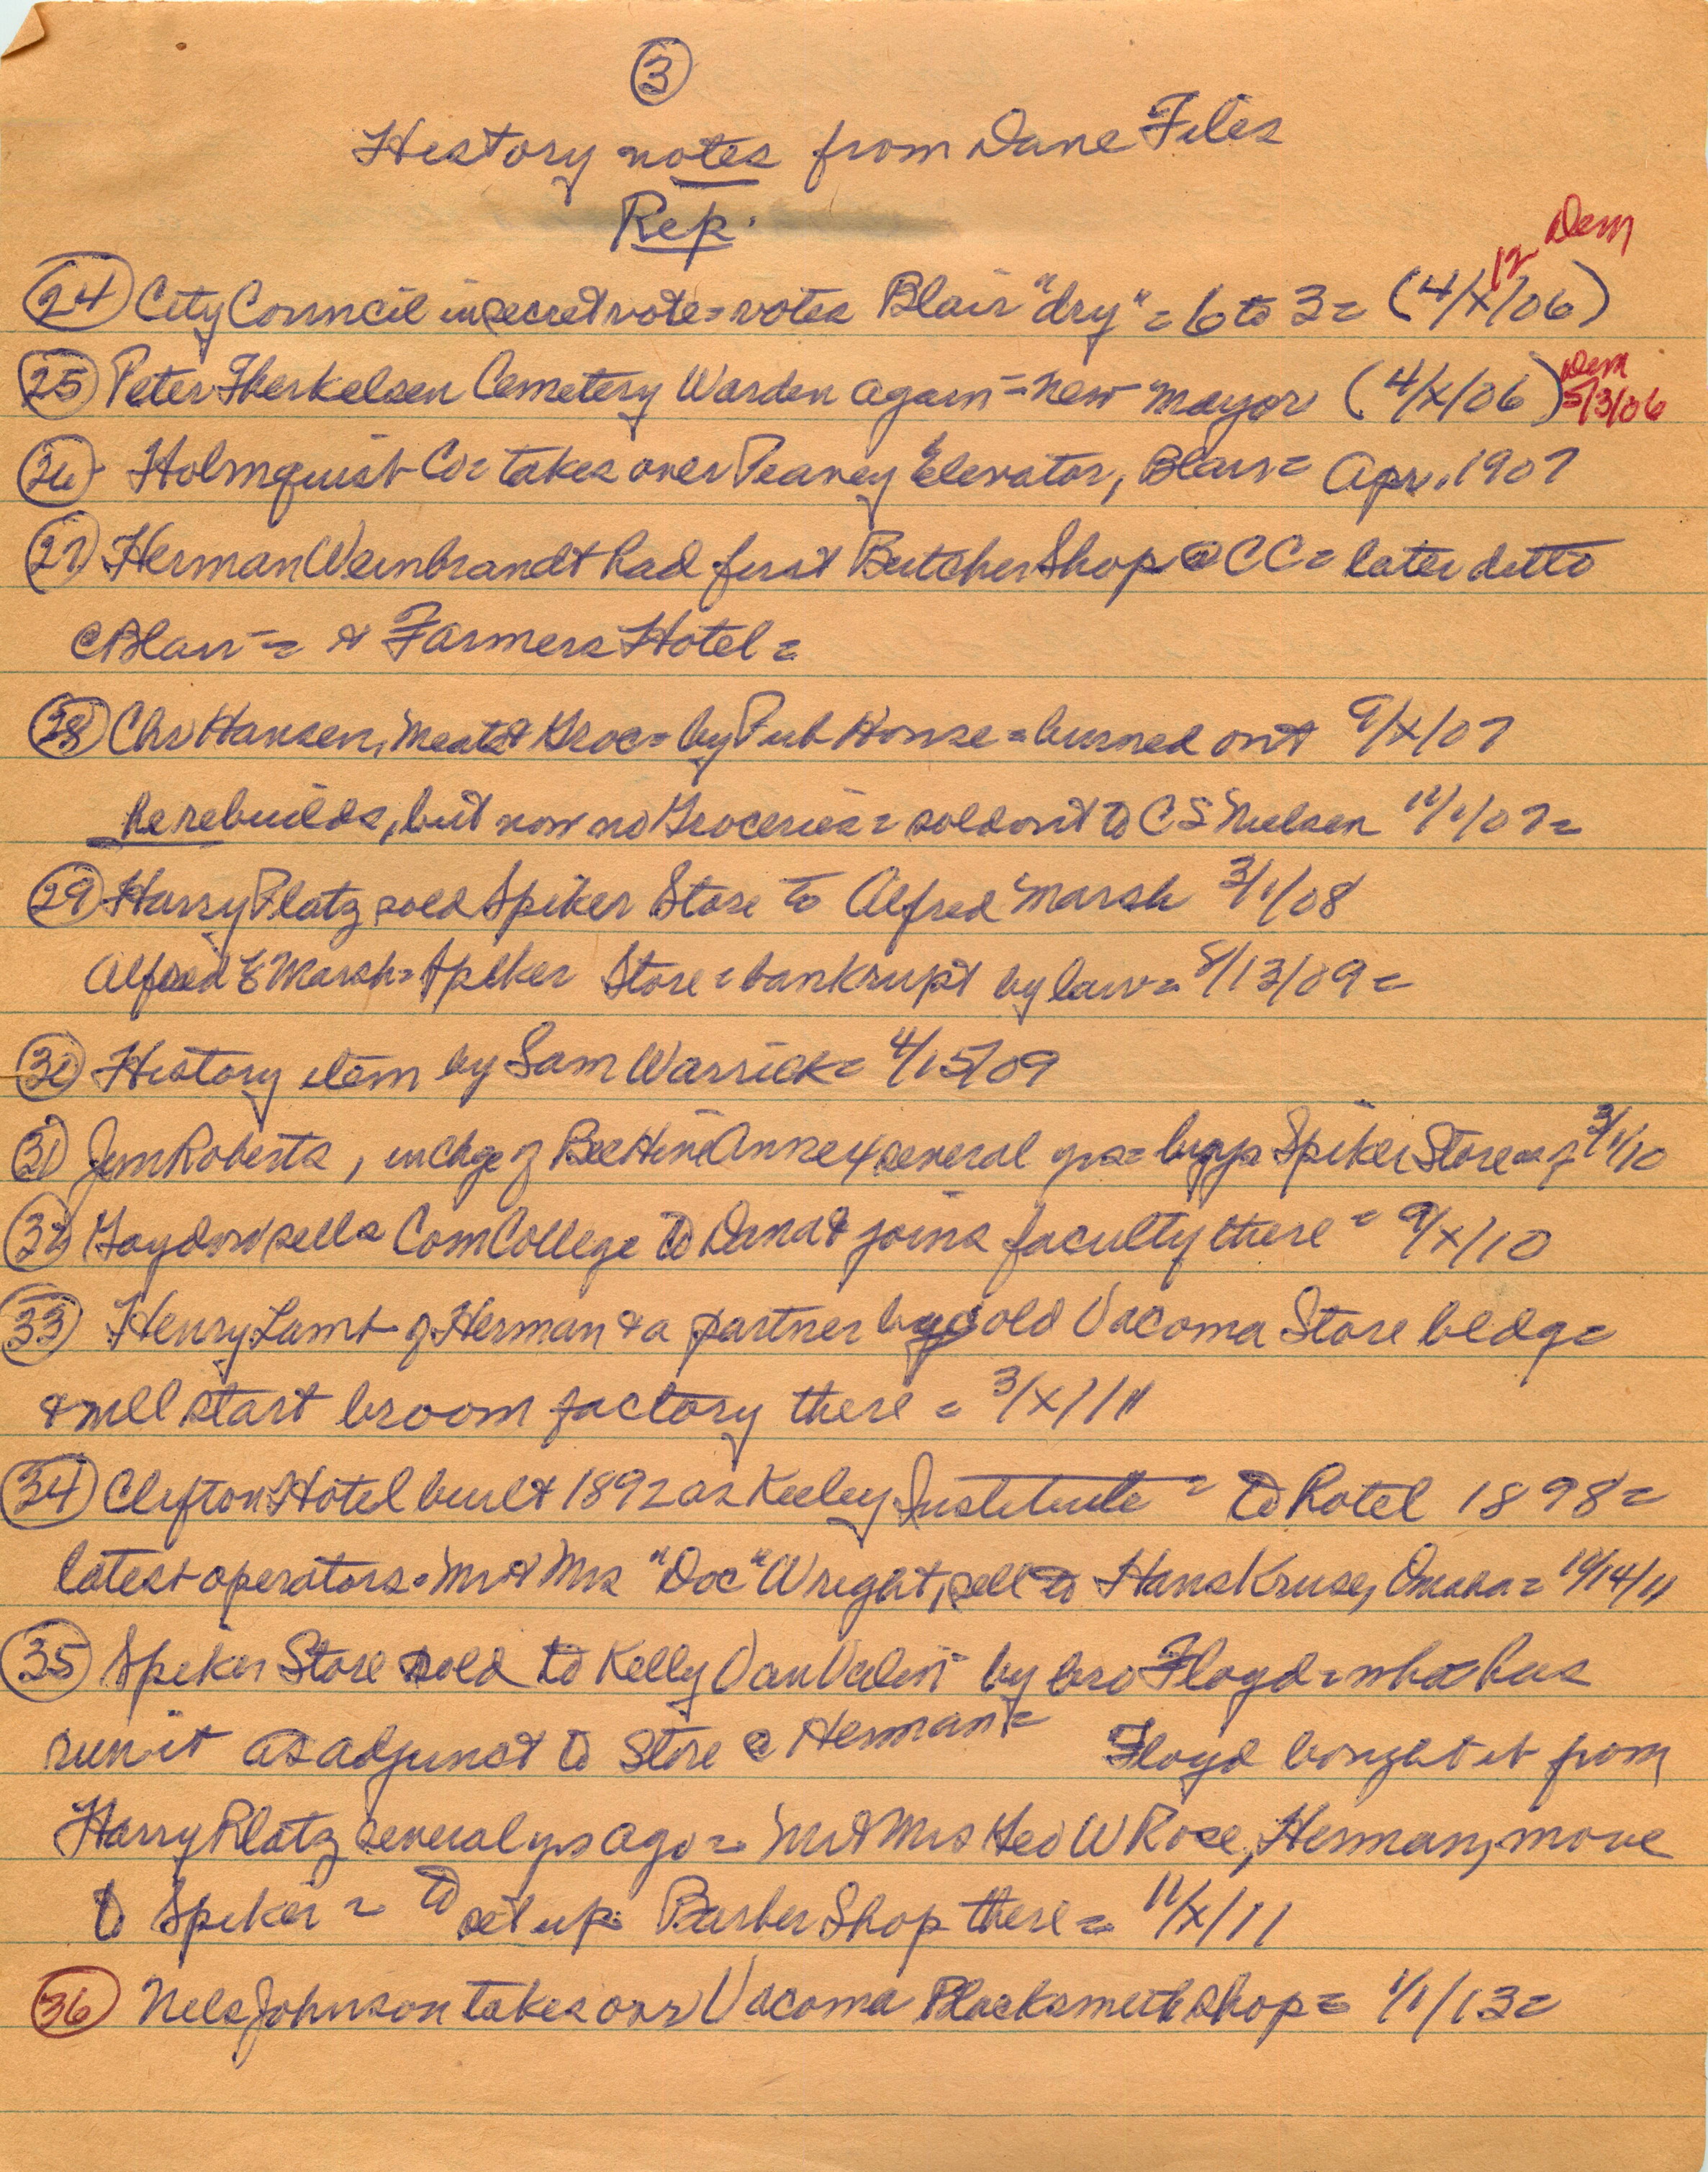 3
History notes from Dane Files
Rep.
Dem
12
24 City Council in secret vote = votes Blair "dry" = 6 to 3 = (4/X/06)
25 Peter Therkelsen Cemetery Warden again = new mayor (4/X/06) Dem 5/3/06
26 Holmquist Co = takes over Peavey Elevator, Blair = Apr. 1907
27 Herman Weinbrandt had first Butcher Shop @ CC = later ditto
@ Blair = & Farmers Hotel =
28 Chr Hansen, Meats & Groc = by Pub House = burned out 9/X/07
he rebuilds, but now no Groceries = sold out to C S Nielsen 11/1/07 =
29 Harry Platz sold Spiker Store to Alfred Marsh 3/1/08
Alfred E Marsh = Spiker Store = bankrupt by law = 8/13/09 =
30 History item by Sam Warrick = 4/15/09
31 Jim Roberts, in chge of Bee Hive Annex 4 several yrs = buys Spiker Store as of 3/1/10
32 sells Com College to Dana & joins faculty there = 9/X/10
33 Henry Lamb of Herman & a partner buys old Vacoma Store bldg =
& will start broom factory there = 3/X/11
34 Clifton Hotel built 1892 as Keeley Institute = to Hotel 1898 =
latest operators = Mr & Mrs "Doc" Wright, sell to Hans Kruse, Omaha = 10/14/11
35 Spiker Store sold to Kelly Van Valin by bro Floyd = who has
run it as adjunct to Store @ Herman = Floyd bought it from
Harry Platz several yrs ago = Mr & Mrs Geo W Rose, Herman, move
to Spiker = to set up Barber Shop there = 11/X/11
36 Nels Johnson takes over Vacoma Blacksmith shop = 1/1/13 =